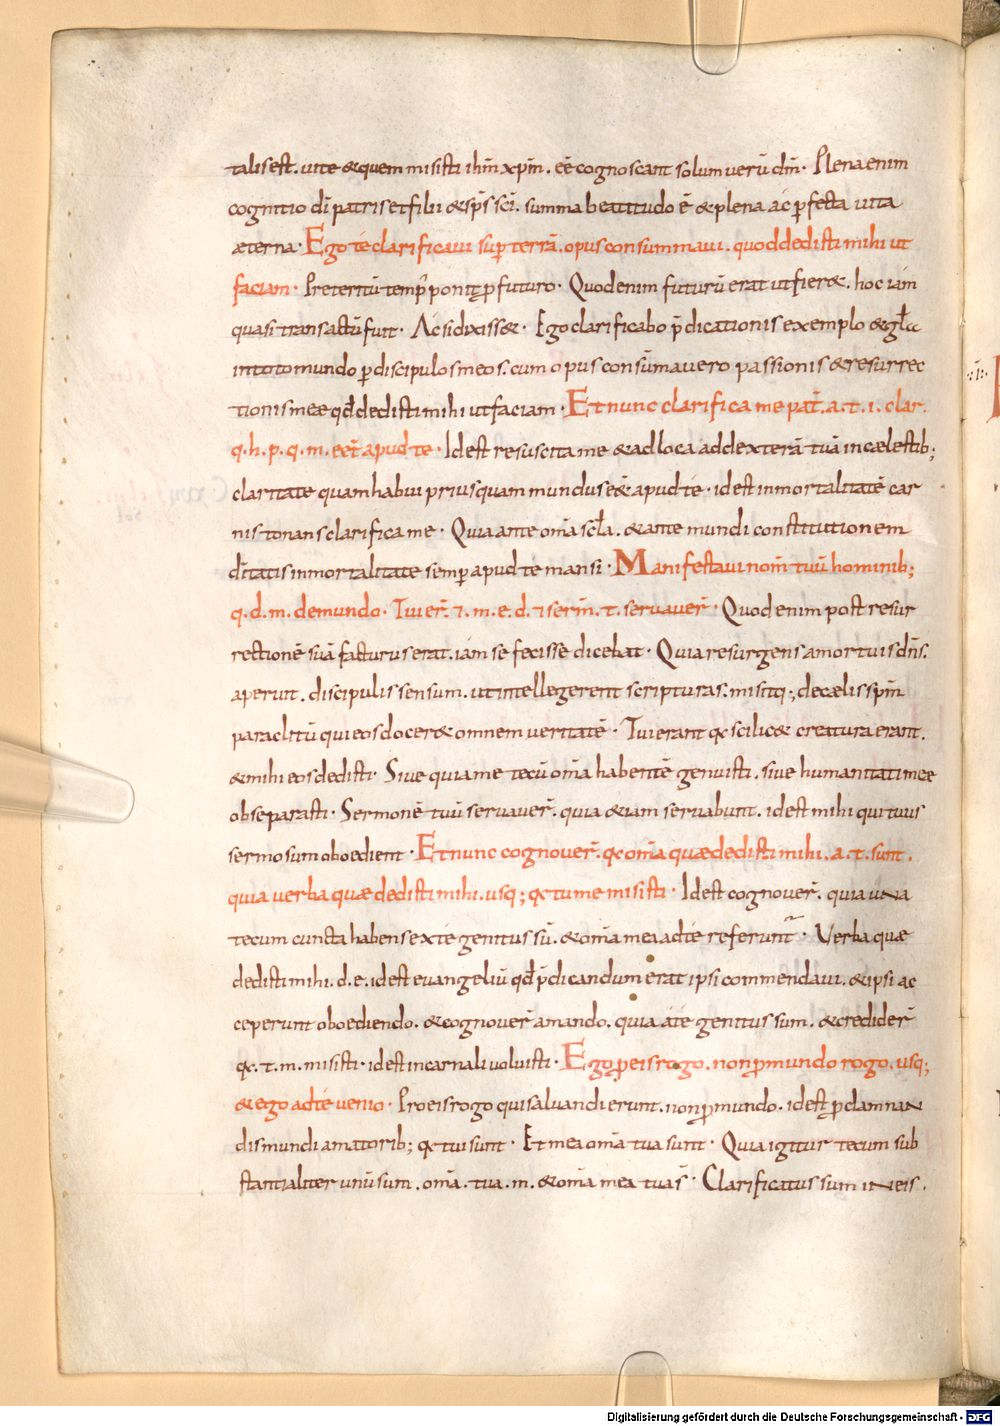 talis est. uite & quem misisti ihm̄ xpm̄. eē cognoscant solum uerū dm̄. Plena enim
cognitio dī patris et filii & sps̄ scī. summa beatitudo ē & plena ac ꝑfecta uita
æterna. Ego te clarificaui suꝑ terrā. opus consummaui. quod dedisti mihi ut
faciam. Preteritū temp̄ ponit ꝓ futuro. Quod enim futurū erat ut fier&. hoc iam
quasi transactū fuit. Ac si dixiss&. Ego clarificabo p̄dicationis exemplo & gła
in toto mundo ꝑ discipulos meos. cum opus consūmauero passionis & resurrec
tionis meæ qđ dedisti mihi ut faciam. Et nunc clarifica me pat̄. a. t. i. clar.
q. h. p. q. m. eēt apud te. Id est resuscita me & adloca ad dexterā tuā in cælestib;
claritate quam habui priusquam mundus eēt apud te. id est inmortalitatē car
nis tonans clarifica me. Quia ante om̄a scła. & ante mundi constitutionem
diūitatis inmortalitate semꝑ apud te mansi. Manifestaui nom̄ tuū hominib;
q. d. m. de mundo. Tui er̄. ⁊. m. e. d. ⁊ serm̄. t. seruauer̄. Quod enim post resur
rectionē suā facturus erat. iam se fecisse dicebat. Quia resurgens a mortuis dn̄s.
aperuit. discipulis sensum. ut intellegerent scripturas. misitq;, de cælis spm̄
paraclitū qui eos docer& omnem ueritatē. Tui erant qc scilic& creatura erant.
& mihi eos dedisti. Siue quia me tecū om̄a habentē genuisti. siue humanitati meæ
obseparasti. Sermonē tuū seruauer̄. quia &iam seruabunt. id est mihi qui tuus
sermo sum oboedient. Et nunc cognouer̄. qc om̄a quæ dedisti mihi. a. t. sunt.
quia uerba quæ dedisti mihi. usq; qc tu me misisti. Id est cognouer̄. quia una
tecum cuncta habens ex te genitus sū. & om̄a mea ad te referuntᷣ. Verba quæ
dedisti mihi. d. e. id est euangeliū qđ p̄dicandum erat ipsi commendaui. & ipsi ac
ceperunt oboediendo. & cognouer̄ amando. quia a te genitus sum. & credider̄
qc. t. m. misisti. id est incarnali uoluisti. Ego ꝓ eis rogo. non ꝓ mundo rogo. usq;
& ego ad te uenio. Pro eis rogo qui saluandi erunt. non ꝓ mundo. id est ꝓ damnan
dis mundi amatorib; qc tui sunt. Et mea om̄a tua sunt. Quia igitur tecum sub
stantialiter unū sum. om̄a. tua. m. & om̄a mea tua s̄. Clarificatus sum in eis.
Digitalisierung gefördert durch die Deutsche Forschungsgemeinschaft - DFG